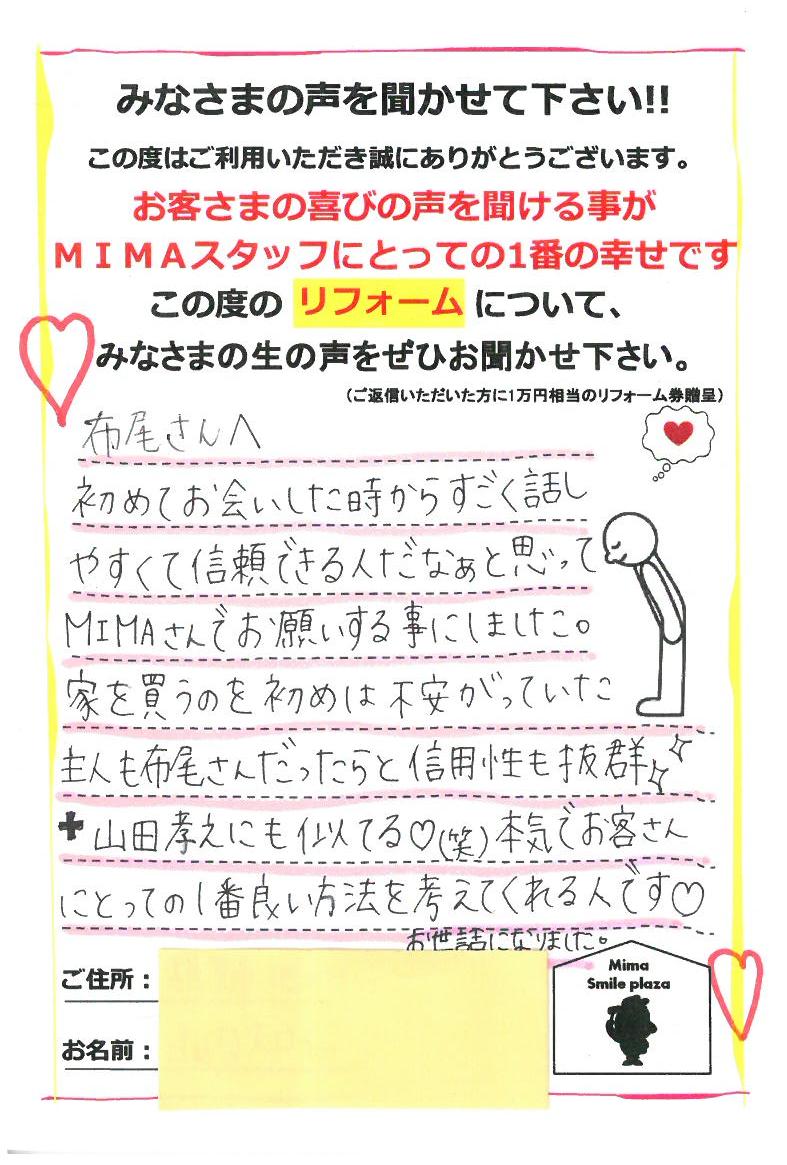 みなさまの声を聞かせて下さい!!
この度はご利用いただき誠にありがとうございます。
お客さまの喜びの声を聞ける事が
ＭＩＭＡスタッフにとっての1番の幸せです
この度の リフォーム について、
みなさまの生の声をぜひお聞かせ下さい。
（ご返信いただいた方に1万円相当のリフォーム券贈呈）
布尾さんへ
初めてお会いした時からすごく話し
やすくて信頼できる人だなぁと思って
MIMAさんでお願いする事にしました。
家を買うのを初めは不安がっていた
主人も布尾さんだったらと信用性も抜群
+ 山田孝之にも似てる♡(笑) 本気でお客さん
にとっての1番良い方法を考えてくれる人です♡
お世話になりました。
ご住所：
お名前：
Mima
Smile plaza